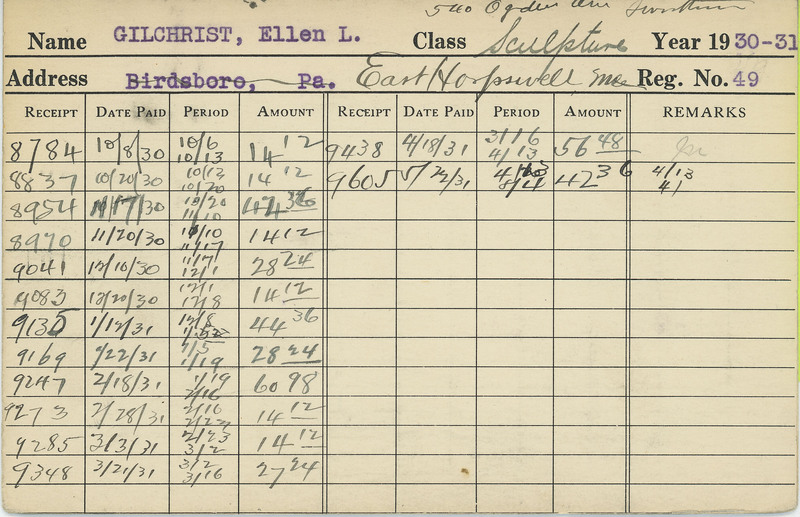 540 Ogden Ave Swarthmore
Name GILCHRIST, Ellen L. Class Sculpture Year 1930-31
Address Birdsboro, Pa. East Harpswell Me Reg. No. 49
RECEIPT DATE PAID PERIOD AMOUNT RECEIPT DATE PAID PERIOD AMOUNT REMARKS
8784 10/8/30 10/6 10/13 14 12 9438 4/18/31 3/16 4/13 56 48
8837 10/20/30 10/13 10/20 14 12 9605 5/22/31 4/13 42 36 4/13
8954 11/17/30 10/20 11/10 42 36
8970 11/20/30 11/10 11/17 14 12
9041 12/10/30 11/17 12/1 28 24
9083 12/20/30 12/1 12/8 14 12
9135 1/12/31 12/8 44 36
9169 1/22/31 1/5 1/19 28 24
9247 2/18/31 1/19 2/16 60 98
9273 2/28/31 2/16 2/23 14 12
9285 3/3/31 2/23 3/2 14 12
9348 3/21/31 3/2 3/16 27 24